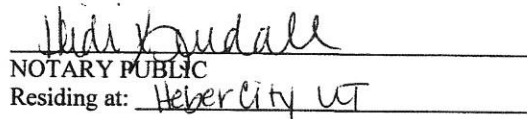 Heidi Kendall
NOTARY PUBLIC
Residing at: Heber City UT